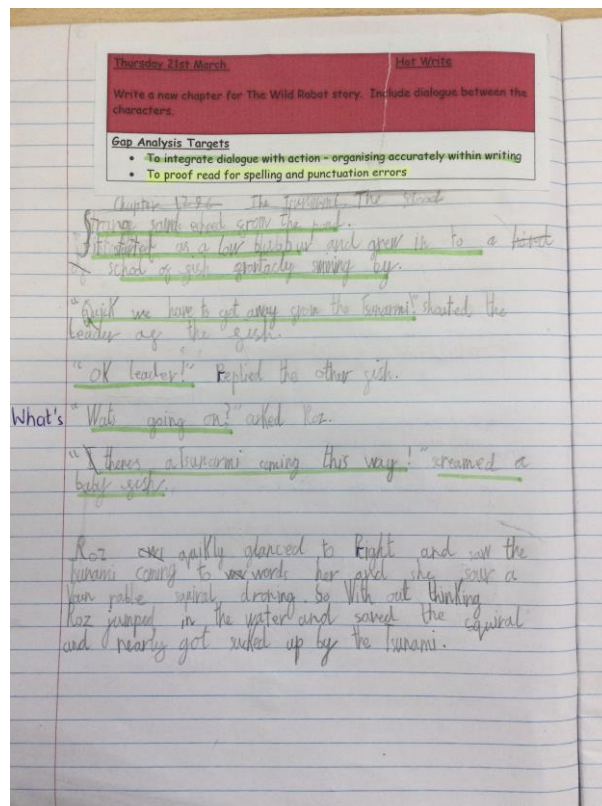 Thursday 21st March Hot Write
Write a new chapter for The Wild Robot story. Include dialogue between the
characters.
Gap Analysis Targets
• To integrate dialogue with action – organising accurately within writing
• To proof read for spelling and punctuation errors
Chapter The Tsunami The
Strange sound from the pond.
as a low and grew in to a
school of gish by.
"Quick we have to get away from the Tsunarmi!" shouted the
Leader og the gish.
"OK leader!" Replied the other gish.
What's
"Wats going on?" asked Roz.
"theres a Tsunarmi coming this way!" screamed a
baby gish.
Roz quikly glanced to Right and saw the
tsunami coming to words her and she saw a
squiral droning. So With out thinking
Roz jumped in the water and saved the squiral
and nearly got sucked up by the Tsunami.